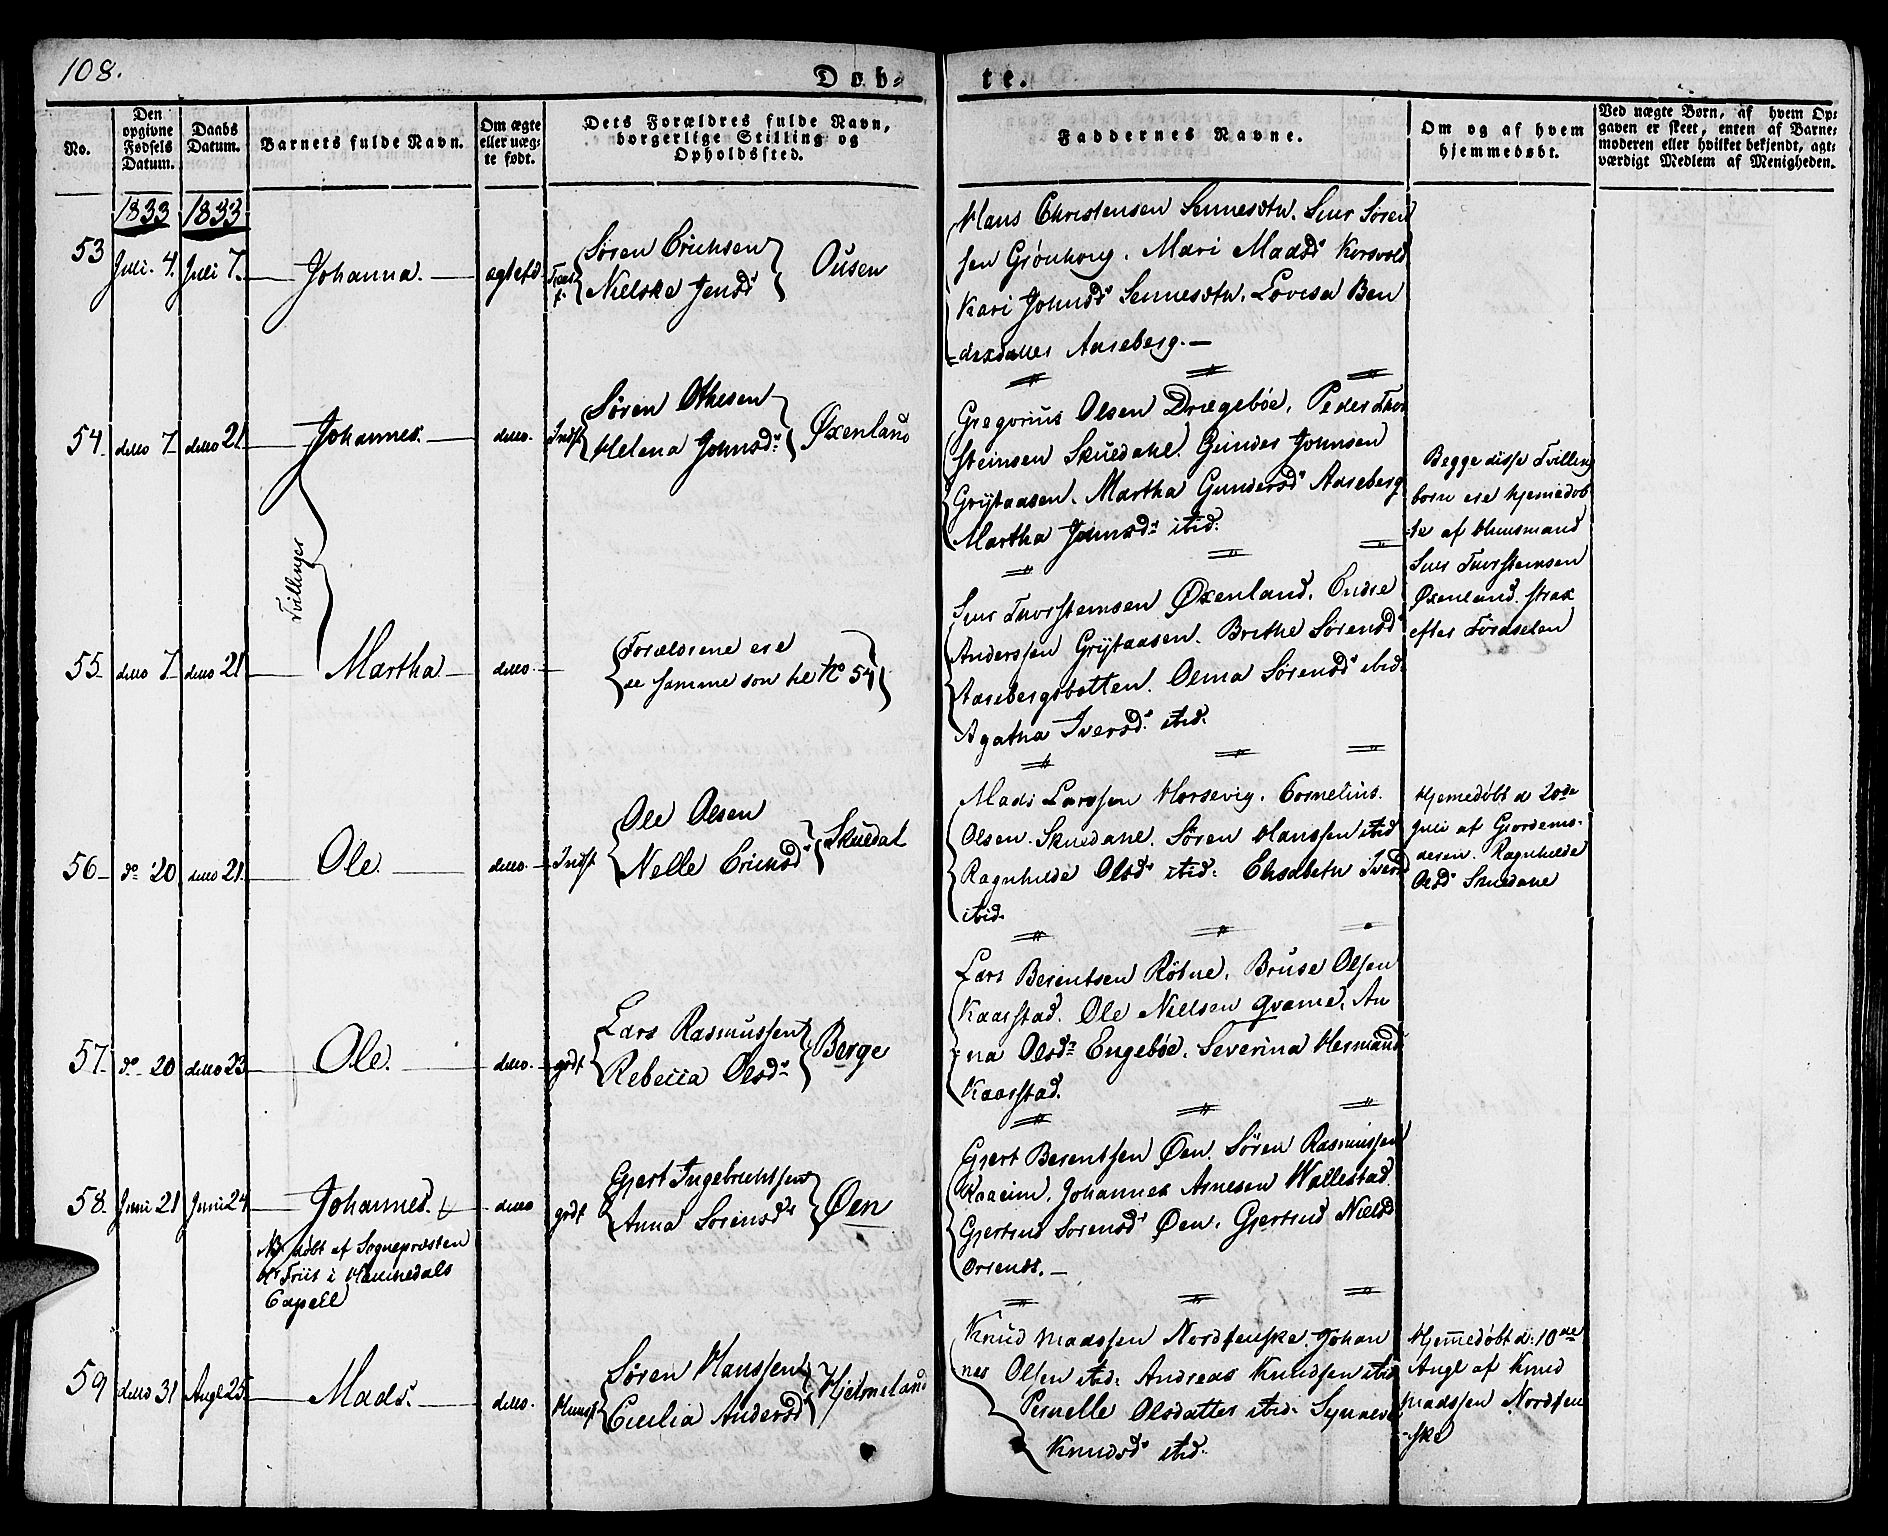 108.
Døb-
te.
No.
Den opgivne Fødsels Datum.
Daabs Datum.
Barnets fulde Navn.
Om ægte eller uægte født.
Dets Forældres fulde Navn, borgerlige Stilling og Opholdssted.
Faddernes Navne.
Om og af hvem hjemmedøbt.
Ved uægte Børn, af hvem Opgaven er skeet, enten af Barnemoderen eller hvilket bekjendt, agtværdigt Medlem af Menigheden.
1833 1833
53 Juli. 4. Juli 7. Johanna. ægtefd.
Søren Erichsen
Nielske Jensd.
Ousen
Hans Christensen Sennesvtn. Siur Søren
sen Grønborg. Mari Madsd. Korsvold
Kari Johnsd. Sennesvtn. Lovisa Ben
dixdatter Aaseberg.
54 detto 7 detto 21 Johannes. detto. Indst
Søren Othesen
Helena Johnsd.
Øxenland
Gregorius Olsen Drægebøe. Peder Thor
steinsen Skuedahl. Gunder Johnsen
Grytaasen. Martha Gundersd. Aaseberg
Martha Johnsd. ibid.
Begge disse Tvilling
born ere hjemedøb
te af Huusmand
Siur Thorsteinsen
Øxenland. strax
efter Fødselen
Tvillinger
55 detto 7 detto 21 Martha detto.
Forældrene ere
de samme som til No 54
Siur Thorsteinsen Øxenland. Endre
Anderssen Grytaasen. Brithe Sørensd.
Aasebergsbotten. Olina Sørensd. ibid.
Agatha Iversd. ibid.
56 do 20 detto 21. Ole. detto. Indst
Ole Olsen
Nelle Erichsd.
Skuedal
Mads Larssen Horsevig. Cornelius
Olsen Skuedahl. Søren Hanssen ibid
Ragnhilde Olsd. ibid. Elisabeth Iversd
ibid.
Hjemedøbt d 20de
Juli af Gjordemo-
deren. Ragnhilde
Olsd Skuedahl
57. do 20 detto 23 Ole. detto. grdf
Lars Rasmussen
Rebecca Olsd.
Berge
Lars Berentsen Røtne. Bruse Olsen
Kaarstad. Ole Nielsen Qvame. An
na Olsd. Engebøe. Severina Hermansd
Kaarstad.
58. Juni 21 Juni 24 Johannes. detto grdf
Gjert Ingebrichtsen
Anna Sorensd.
Øen
Gjert Berentsen Øen. Søren Rasmussen
Johannes Arnesen Wallestad.
Gjertrud Sorensd. Øen. Gjertrud Nielsd
NB døbt af Sognepræsten
Hr Friis i Hammedals
Capell
59 detto 31 Augt 25 Mads. detto. Huusf
Søren Hanssen
Cecilia Andersd
Hjelmeland
Knud Madssen Nordfenske. Johan
nes Olsen ibid. Andreas Knudsen ibid
Pernelle Olsdatter ibid. Synneve
Knudsd. ibid.
Hjemedøbt d. 10de
Augt af Knud
Madssen Nordfen
ske